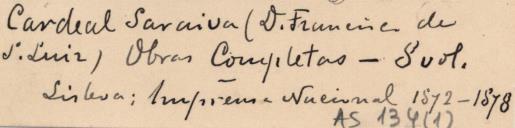 Cardeal Saraiva (D. Francisco de
S. Luiz) Obras Completas — 8 vol.
Lisboa; Imprensa Nacional 1872-1878
AS 134(1)